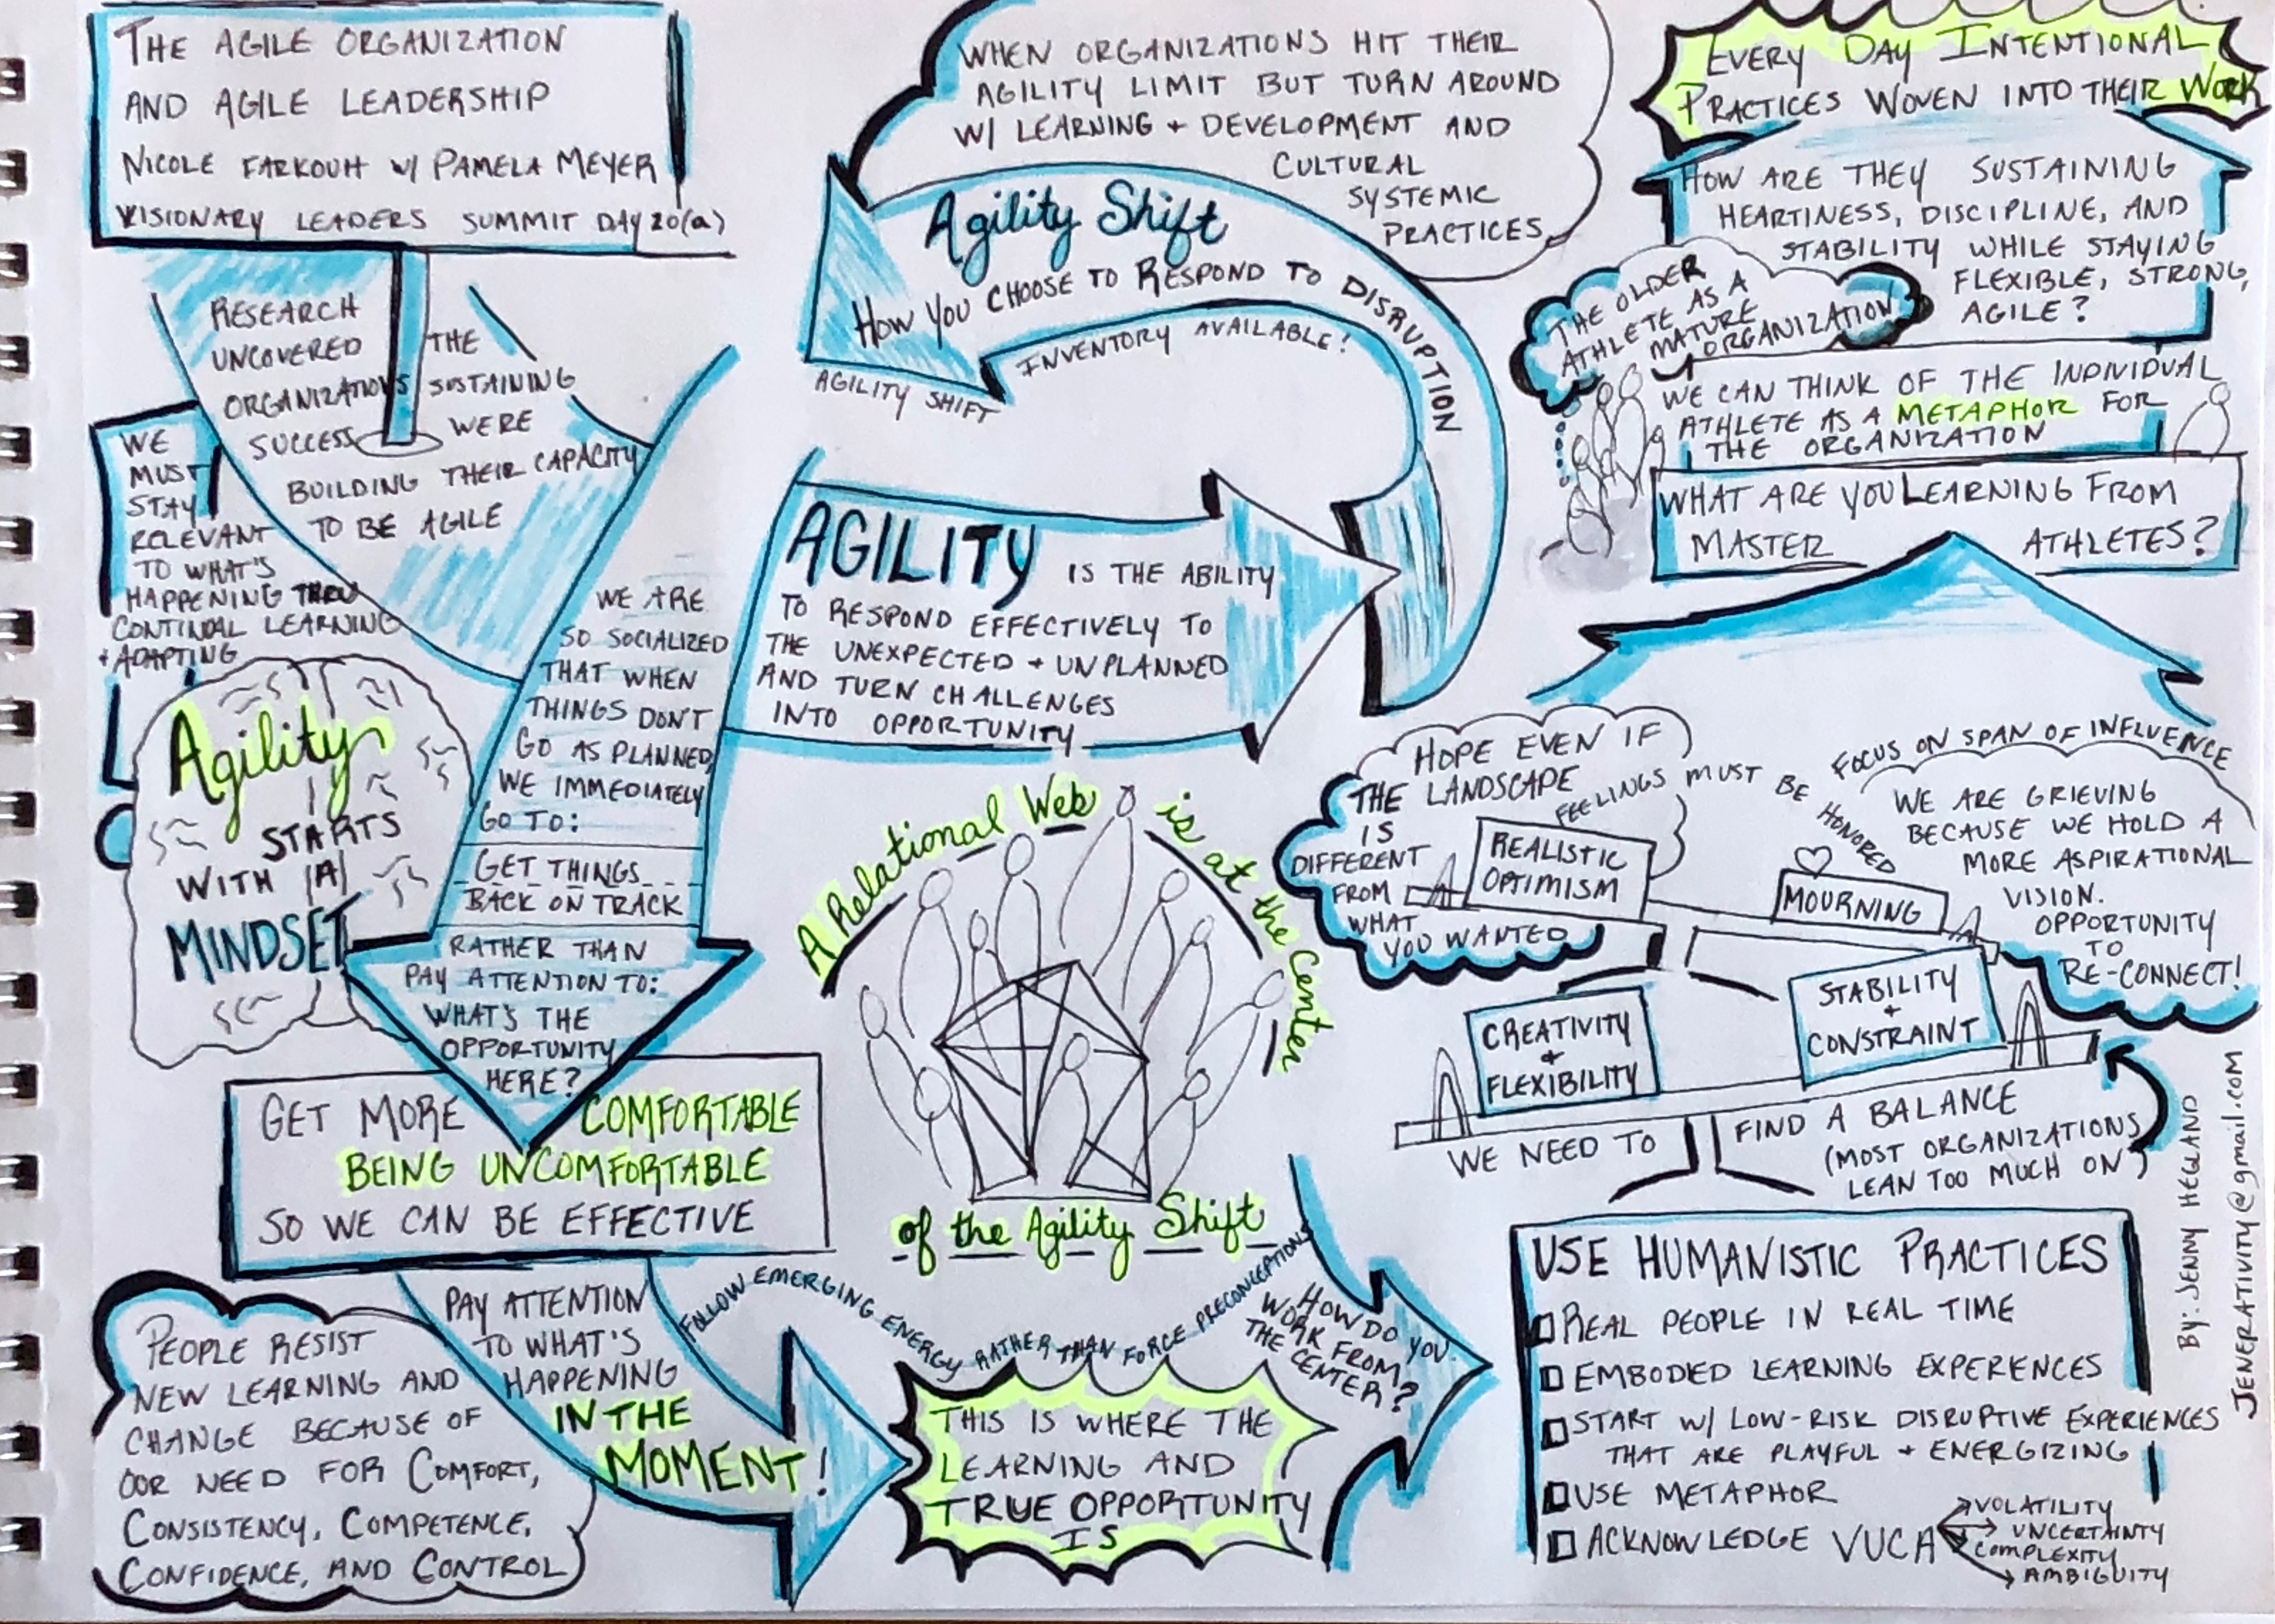 THE AGILE ORGANIZATION
AND AGILE LEADERSHIP
NICOLE FARKOUH W/ PAMELA MEYER
VISIONARY LEADERS SUMMIT DAY 20(a)
RESEARCH
UNCOVERED
ORGANIZATIONS
SUCCESS
THE
SUSTAINING
WERE
BUILDING THEIR CAPACITY
TO BE AGILE
WE
MUST
STAY
RELEVANT
TO WHAT'S
HAPPENING THRU
CONTINUAL LEARNING
+ ADAPTING
Agility
STARTS
WITH |A|
MINDSET
WE ARE
SO SOCIALIZED
THAT WHEN
THINGS DON'T
GO AS PLANNED,
WE IMMEDIATELY
GO TO:
GET THINGS
BACK ON TRACK
RATHER THAN
PAY ATTENTION TO:
WHAT'S THE
OPPORTUNITY
HERE?
GET MORE COMFORTABLE
BEING UNCOMFORTABLE
SO WE CAN BE EFFECTIVE
PEOPLE RESIST
NEW LEARNING AND
CHANGE BECAUSE OF
OUR NEED FOR COMFORT,
CONSISTENCY, COMPETENCE,
CONFIDENCE, AND CONTROL
PAY ATTENTION
TO WHAT'S
HAPPENING
IN THE
MOMENT!
WHEN ORGANIZATIONS HIT THEIR
AGILITY LIMIT BUT TURN AROUND
W/ LEARNING + DEVELOPMENT AND
CULTURAL
SYSTEMIC
PRACTICES
Agility Shift
HOW YOU CHOOSE TO RESPOND TO DISRUPTION
INVENTORY AVAILABLE!
AGILITY SHIFT
AGILITY IS THE ABILITY
TO RESPOND EFFECTIVELY TO
THE UNEXPECTED + UNPLANNED
AND TURN CHALLENGES
INTO OPPORTUNITY
A Relational Web is at the Center
of the Agility Shift
FOLLOW EMERGING ENERGY RATHER THAN FORCE PRECONCEPTIONS
THIS IS WHERE THE
LEARNING AND
TRUE OPPORTUNITY
IS
HOW DO YOU
WORK FROM
THE CENTER?
EVERY DAY INTENTIONAL
PRACTICES WOVEN INTO THEIR WORK
HOW ARE THEY SUSTAINING
HEARTINESS, DISCIPLINE, AND
STABILITY WHILE STAYING
FLEXIBLE, STRONG,
AGILE?
THE OLDER
ATHLETE AS A
MATURE
ORGANIZATION
WE CAN THINK OF THE INDIVIDUAL
ATHLETE AS A METAPHOR FOR
THE ORGANIZATION
WHAT ARE YOU LEARNING FROM
MASTER ATHLETES?
HOPE EVEN IF
THE LANDSCAPE
IS
DIFFERENT
FROM
WHAT
YOU WANTED
FEELINGS MUST BE HONORED
FOCUS ON SPAN OF INFLUENCE
WE ARE GRIEVING
BECAUSE WE HOLD A
MORE ASPIRATIONAL
VISION.
OPPORTUNITY
TO
RE-CONNECT!
REALISTIC
OPTIMISM
MOURNING
CREATIVITY
+
FLEXIBILITY
STABILITY
+
CONSTRAINT
WE NEED TO FIND A BALANCE
(MOST ORGANIZATIONS
LEAN TOO MUCH ON)
USE HUMANISTIC PRACTICES
REAL PEOPLE IN REAL TIME
EMBODED LEARNING EXPERIENCES
START W/ LOW-RISK DISRUPTIVE EXPERIENCES
THAT ARE PLAYFUL + ENERGIZING
USE METAPHOR
ACKNOWLEDGE VUCA
VOLATILITY
UNCERTAINTY
COMPLEXITY
AMBIGUITY
BY: JENNY HEGLAND
JENERATIVITY@gmail.com